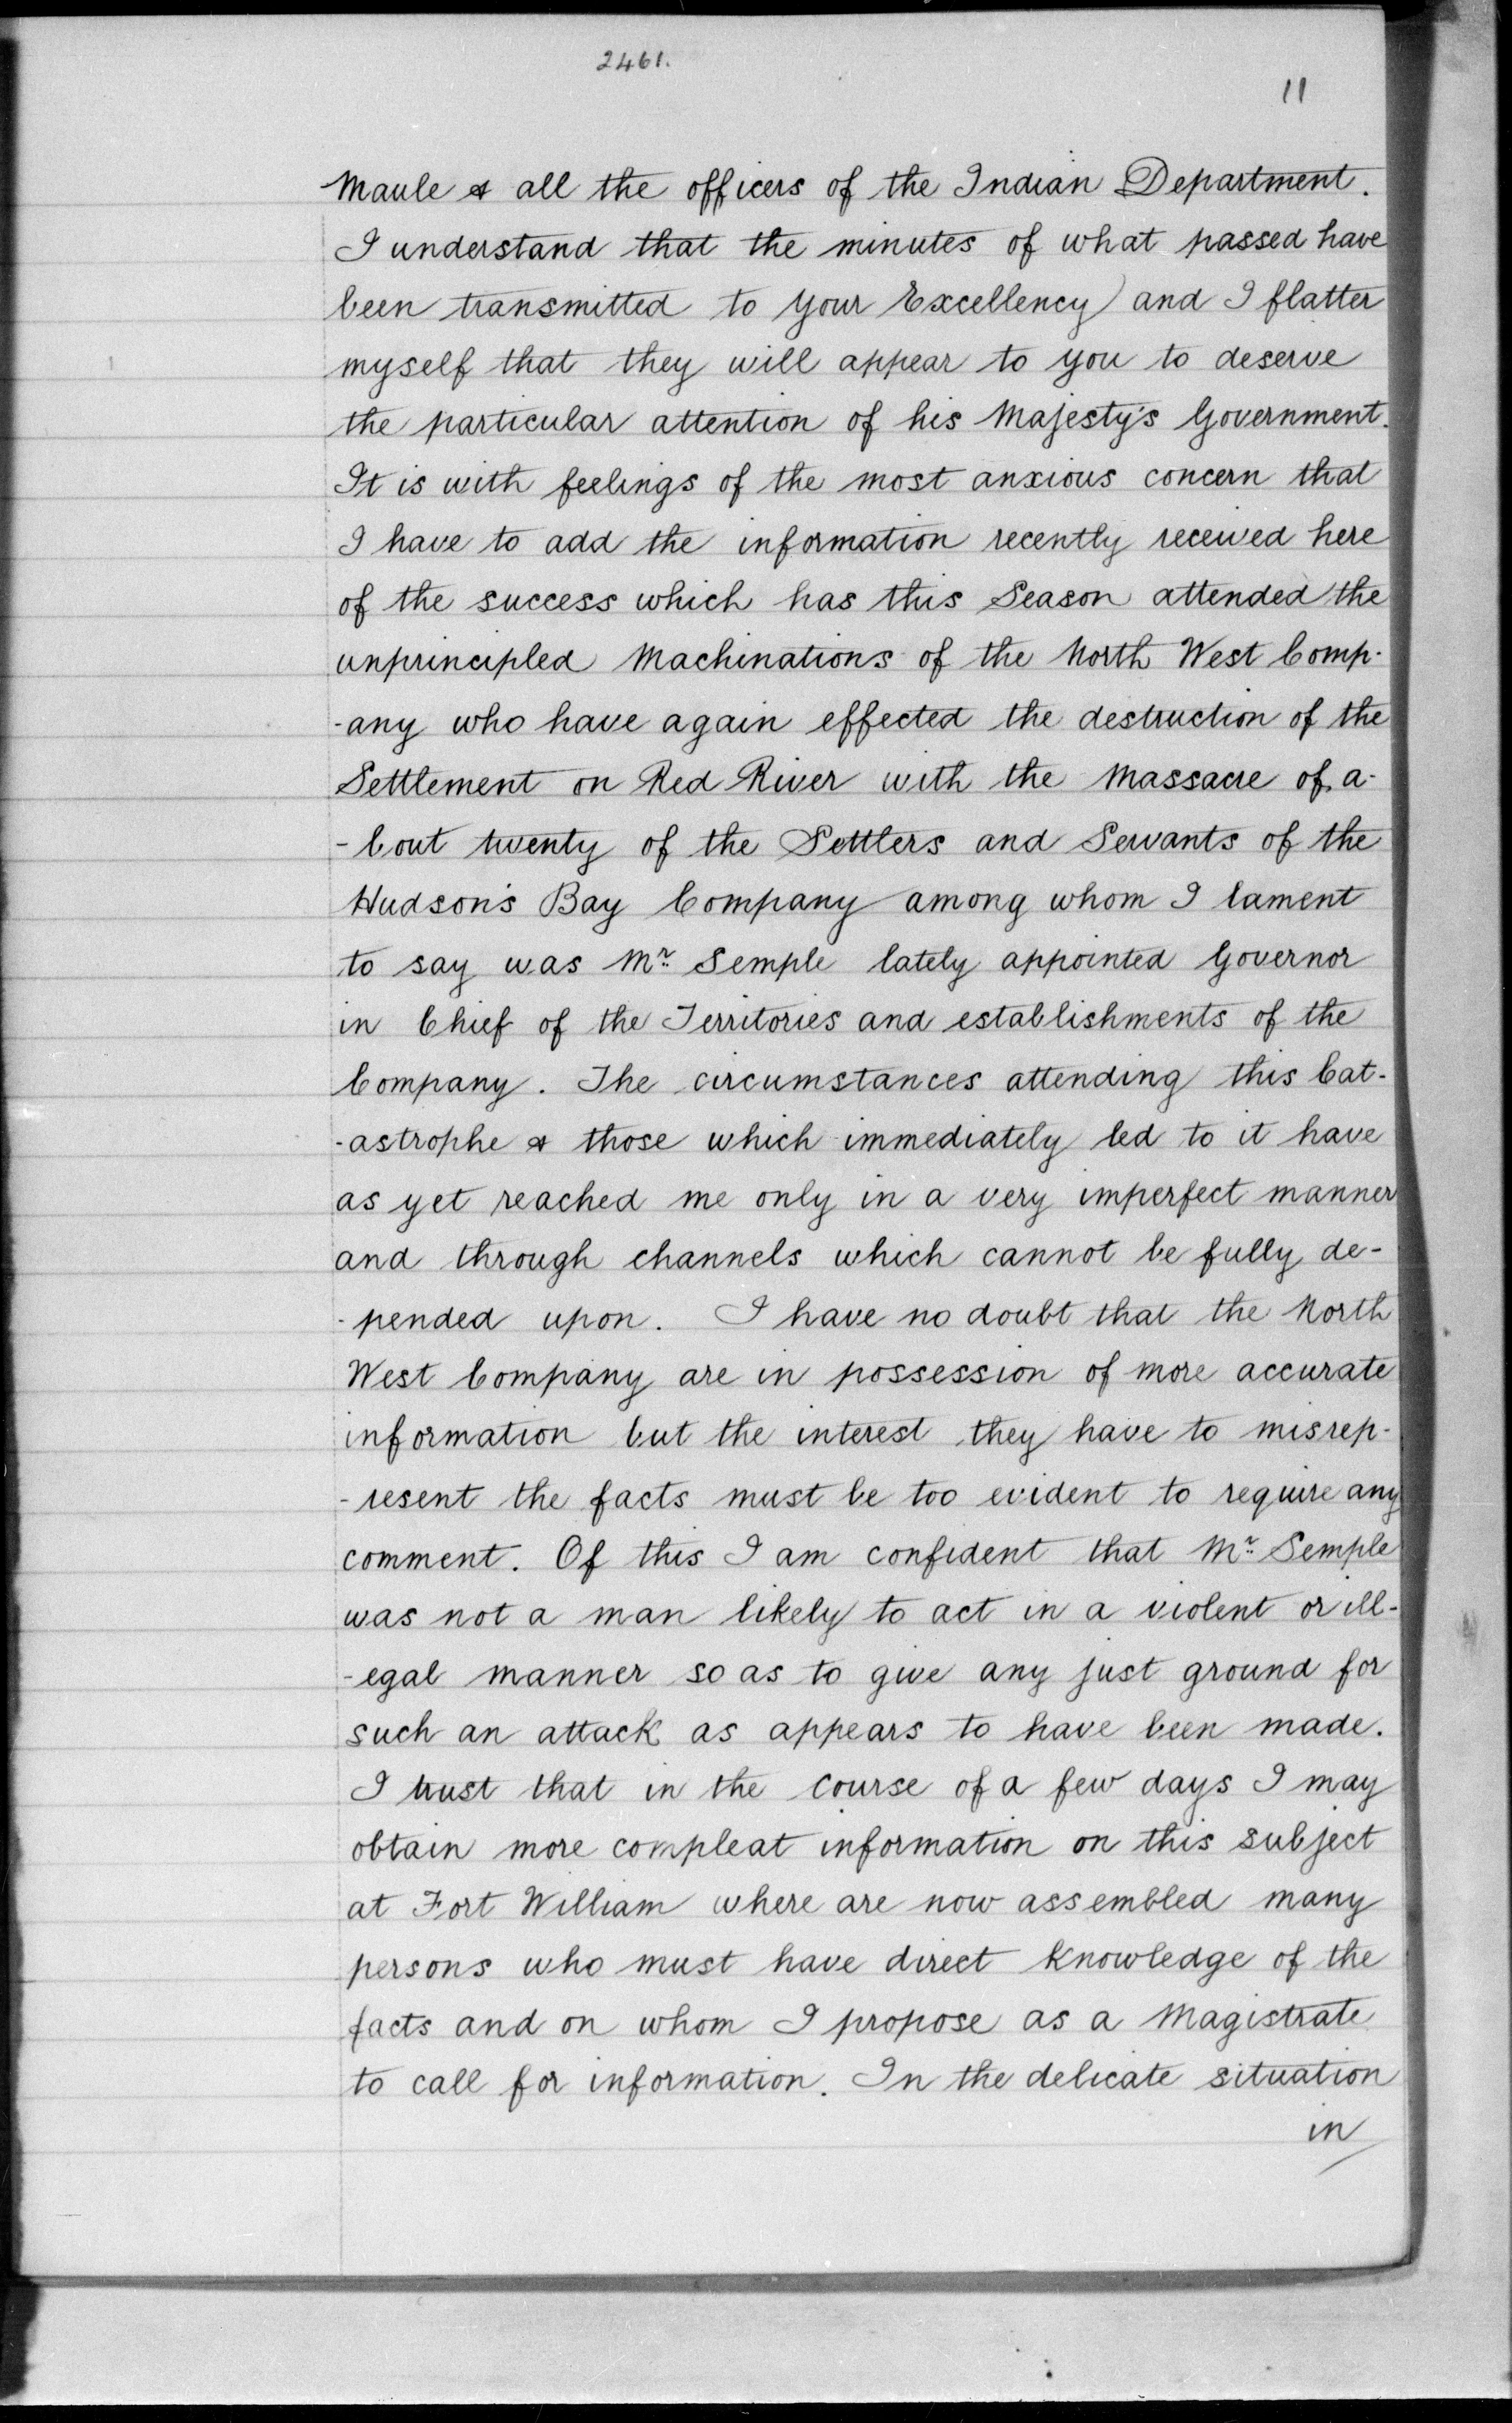 2461.
11
Maule & all the officers of the Indian Department.
I understand that the minutes of what passed have
been transmitted to your Excellency and I flatter
myself that they will appear to you to deserve
the particular attention of his Majesty's Government.
It is with feelings of the most anxious concern that
I have to add the information recently received here
of the success which has this Season attended the
unprincipled Machinations of the North West Comp-
-any who have again effected the destruction of the
Settlement on Red River with the Massacre of a-
-bout twenty of the Settlers and Servants of the
Hudson's Bay Company among whom I lament
to say was Mr. Semple lately appointed Governor
in Chief of the Territories and establishments of the
Company. The circumstances attending this Cat-
-astrophe & those which immediately led to it have
as yet reached me only in a very imperfect manner
and through channels which cannot be fully de-
-pended upon. I have no doubt that the North
West Company are in possession of more accurate
information but the interest they have to misrep-
-resent the facts must be too evident to require any
comment. Of this I am confident that Mr. Semple
was not a man likely to act in a violent or ill-
-egal manner so as to give any just ground for
such an attack as appears to have been made.
I trust that in the course of a few days I may
obtain more compleat information on this subject
at Fort William where are now assembled many
persons who must have direct knowledge of the
facts and on whom I propose as a Magistrate
to call for information. In the delicate situation
in